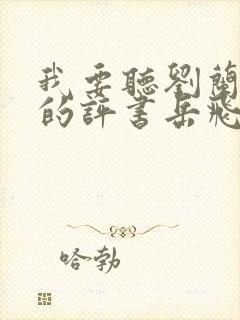 我要聽劉蘭
的評書岳飛
哈勃